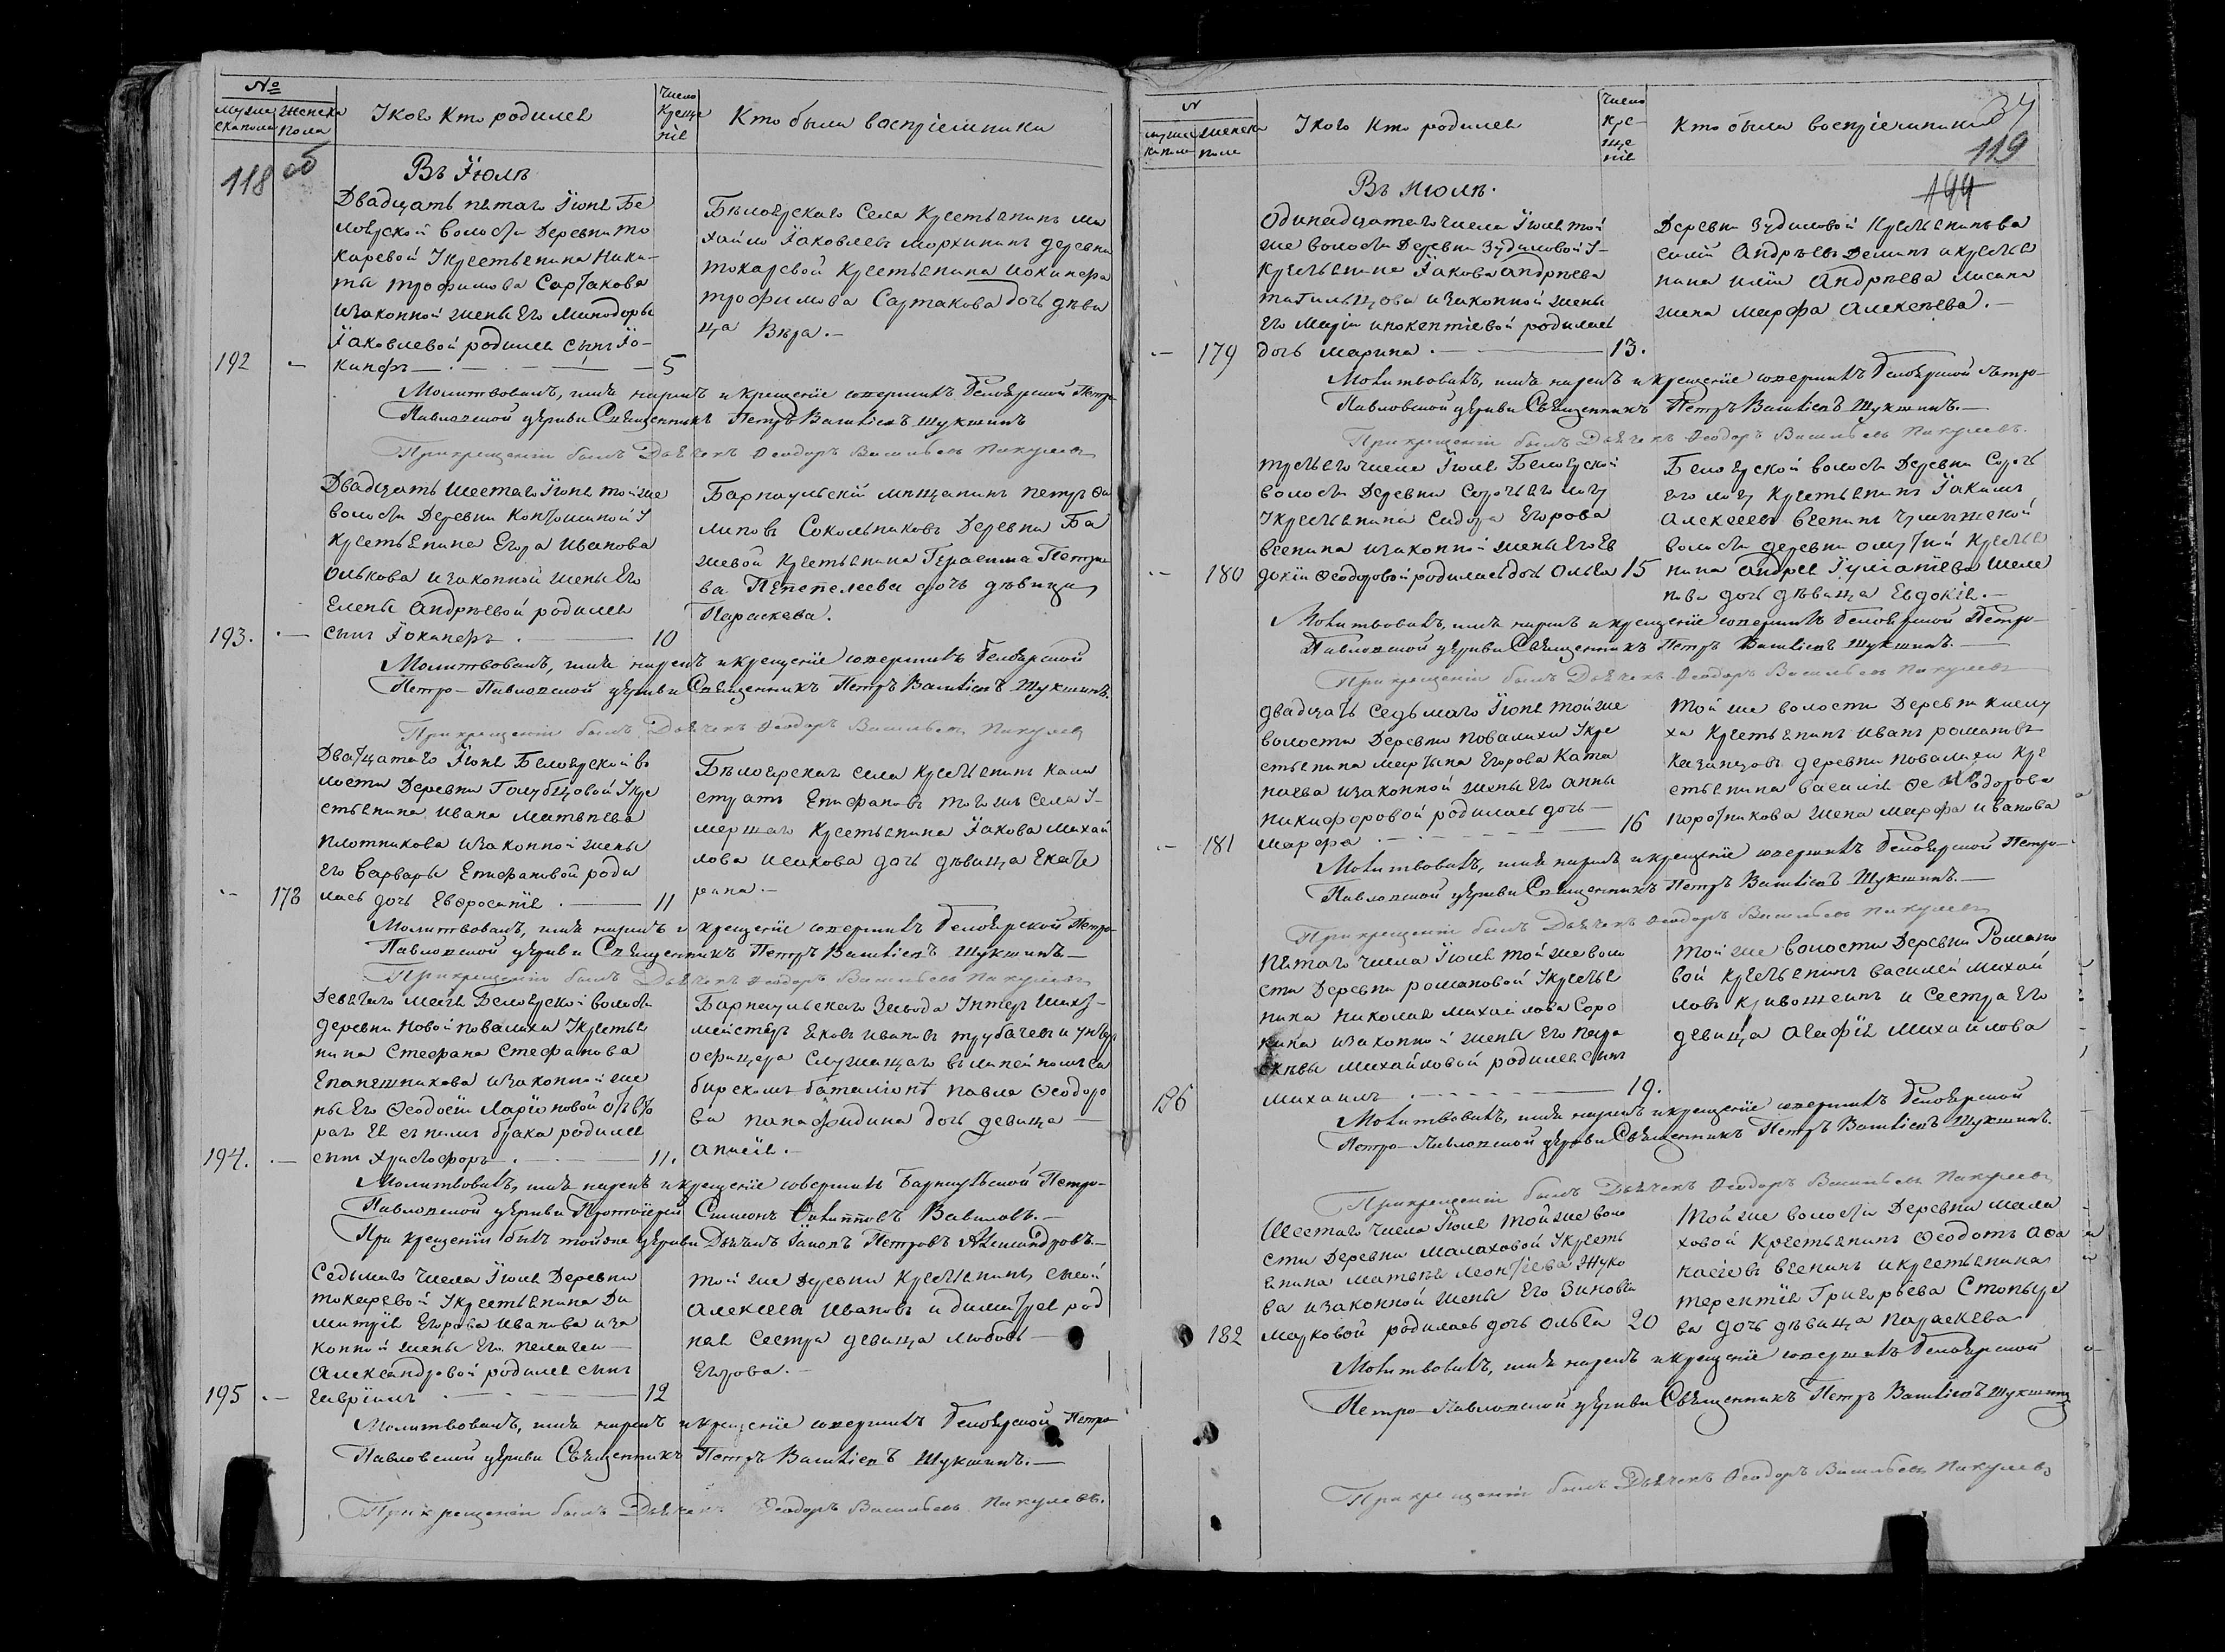 №
Мужска пола
Женска пола
У кого кто родился
Число Креще нія
Кто были воспріемники
118 об
Въ Іюлѣ
Двадцать пятаго Іюня Бе
лоярской волости Деревни То
каревой У крестьянина Ники-
ты Трофимова Сартакова
и законной жены его Минодоры
Іаковлевой родился сынъ Іо-
192 — кинфъ — 5
Бѣлоярскаго Села Крестьянинъ Ми
хайло Іаковлевъ Мордкининъ деревни
Токаревой Крестьянина
Трофимова Сартакова дочь дѣви
ца Вѣра. —
Молитвовалъ, имя нарекъ и крещеніе совершилъ Белоярской Петро-
Павловской церкви Священникъ Петръ Шукшинъ
При крещеніи былъ Дьячекъ Ѳеодоръ Васильевъ Пикулевъ
Двадцать шестаго Іюня той же
волости Деревни У
крестьянина Егора Иванова
Олькова и законной жены его
Елены Андрѣевой родился
193. — сынъ — 10
Барнаульскій мѣщанинъ Петръ Фи
липовъ Сокольниковъ Деревни Ба
жевой Крестьянина Герасима Петро
ва Пепелева дочь дѣвица
Параскева.
Молитвовалъ, имя нарекъ и крещеніе совершилъ Белоярской
Петро-Павловской церкви Священникъ Петръ Шукшинъ.
При крещеніи былъ Дьячекъ Ѳеодоръ Васильевъ Пикулевъ
Двадцатаго Іюня Белоярской во
лости Деревни Голубцовой У кре
стьянина Ивана Матвѣева
Плотникова и законной жены
его Варвары Епифановой роди
178 лась дочь Евфросинія — 11
Бѣлоярскаго села Крестьянинъ Кали
стратъ Епифановъ того же села У-
мершаго Крестьянина Іакова Михай
лова Исакова дочь дѣвица Екате
рина. —
Молитвовалъ, имя нарекъ и крещеніе совершилъ Белоярской Петро-
Павловской церкви Священникъ Петръ Шукшинъ —
При крещеніи былъ Дьячекъ Ѳеодоръ Васильевъ Пикулевъ
Белоярской волости
деревни Новой повалихи У крестья
нина Стефана Стефанова
Епанешникова и законной же
ны его Ѳеодосіи Ларіоновой отъ вто
раго ея съ нимъ брака родился
194. — сынъ Христофоръ — 11.
Барнаульскаго Завода Унтеръ Шихт-
мейстеръ Яковъ Ивановъ Трубачевъ и унтеръ
офицера служащаго въ линейномъ Си
бирскомъ баталіонѣ Павла Ѳеодоро
ва Панафидина дочь девица —
Анисія. —
Молитвовалъ, имя нарекъ и крещеніе совершилъ Барнаульской Петро-
Павловской церкви Протоіерей Симеонъ Вавиловъ. —
При крещеніи былъ той же церкви Дьячекъ Петровъ Александровъ. —
Седьмаго числа Іюля Деревни
Токаревой У крестьянина Ди
митрія Егорова Иванова и за
конной жены его Пелагеи —
Александровой родился сынъ
195 — Гавріилъ — 12
той же деревни Крестьянинъ
Алексей Ивановъ и Димитрія род
ная сестра девица Любовь —
Егорова. —
Молитвовалъ, имя нарекъ и крещеніе совершилъ Белоярской Петро-
Павловской церкви Священникъ Петръ Шукшинъ. —
При крещеніи былъ Дьячекъ Ѳеодоръ Васильевъ Пикулевъ.
№
Мужска пола
Женска пола
У кого кто родился
Число Кре-ще нія
Кто были воспріемники
119
Въ Июлѣ.
Одинадцатаго числа Іюля той
же волости Деревни Зудиловой У-
крестьянина Іакова Андрѣева
и законной жены
его Маріи Инокентіевой родилась
— 179 дочь Марина. — 13.
Деревни Зудиловой Крестьянинъ Ва
силій Андрѣевъ Деминъ и крестья
нина Андрѣева
жена Марфа Алексѣева. —
Молитвовалъ, имя нарекъ и крещеніе совершилъ Белоярской Петро-
Павловской церкви Священникъ Петръ Шукшинъ. —
При крещеніи былъ Дьячекъ Ѳеодоръ Васильевъ Пикулевъ.
Третьяго числа Іюля Белоярской
волости Деревни Сорочьяго логу
У крестьянина Сидора Егорова
Всенина и законной жены его Ев
— 180 докіи Ѳеодоровой родилась дочь Ольга 15
Белоярской волости Деревни Сороч
его логу Крестьянинъ Іакимъ
Алексеевъ Всенинъ Чумышской
волости деревни Крестья
нина Андрея Шеле
пова дочь дѣвица Евдокія. —
Молитвовалъ, имя нарекъ и крещеніе совершилъ Белоярской Петро-
Павловской церкви Священникъ Петръ Шукшинъ. —
При крещеніи былъ Дьячекъ Ѳеодоръ Васильевъ Пикулевъ
Двадцать седьмаго Іюня той же
волости Деревни Повалихи У кре
стьянина Мартына Егорова Ката
наева и законной жены его Анны
Никифоровой родилась дочь —
— 181 Марфа — 16
Той же волости Деревни
ха Крестьянинъ Иванъ Романовъ
Казанцовъ деревни Повалихи Кре
стьянина Василія Ѳеодорова
Поротникова жена Марфа Иванова
Молитвовалъ, имя нарекъ и крещеніе совершилъ Белоярской Петро-
Павловской церкви Священникъ Петръ Шукшинъ. —
При крещеніи былъ Дьячекъ Ѳеодоръ Васильевъ Пикулевъ
Пятаго числа Іюля той же воло
сти Деревни Романовой У крестья
нина Николая Михайлова Соро
кина и законной жены его Пара
скевы Михайловой родился сынъ
196 Михаилъ — 19.
Той же волости Деревни Романо
вой Крестьянинъ Василей Михай
ловъ Кривошеинъ и сестра его
девица Агафія Михайлова
Молитвовалъ, имя нарекъ и крещеніе совершилъ Белоярской
Петро-Павловской церкви Священникъ Петръ Шукшинъ.
При крещеніи былъ Дьячекъ Ѳеодоръ Васильевъ Пикулевъ
Шестаго числа Іюля той же воло
сти Деревни Малаховой У кресть
янина Матвея Леонтіева Жуко
ва и законной жены его Зиновіи
182 Марковой родилась дочь Ольга 20
Той же волости Деревни Мала
ховой Крестьянинъ Ѳеодотъ Афа
насіевъ Всенинъ и крестьянина
Терентія Григорьева Стопыре
ва дочь дѣвица Параскева
Молитвовалъ, имя нарекъ и крещеніе совершилъ Белоярской
Петро-Павловской церкви Священникъ Петръ Шукшинъ
При крещеніи былъ Дьячекъ Ѳеодоръ Васильевъ Пикулевъ